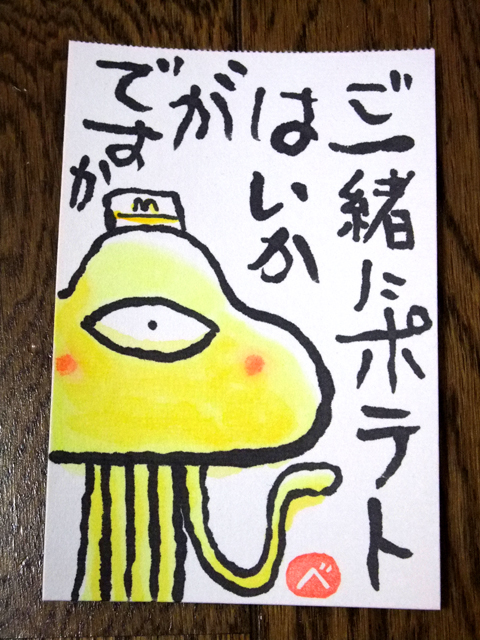 ご一緒にポテト
はいか
が
ですか
m
べ